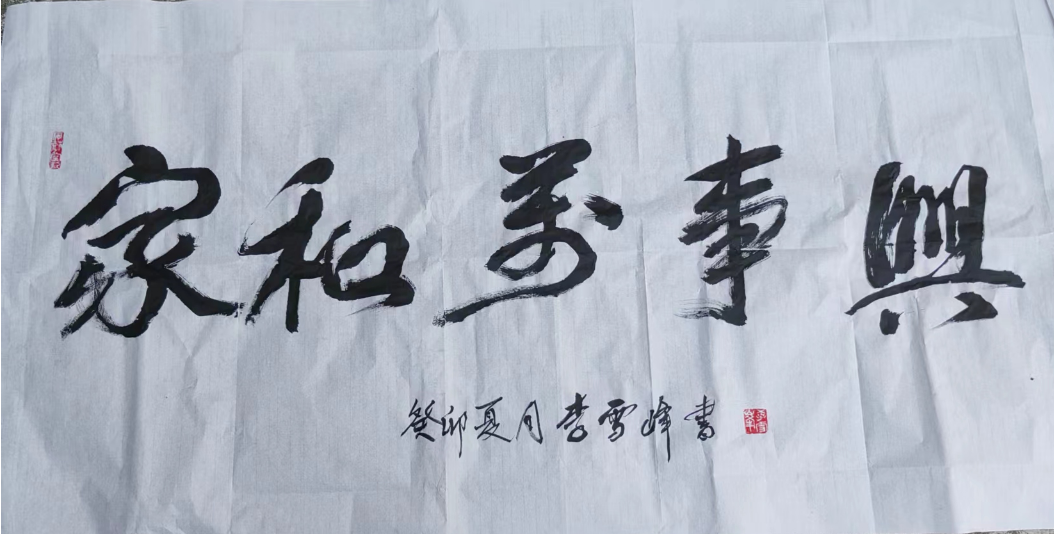 家和萬事興
癸卯夏月李雪峰書